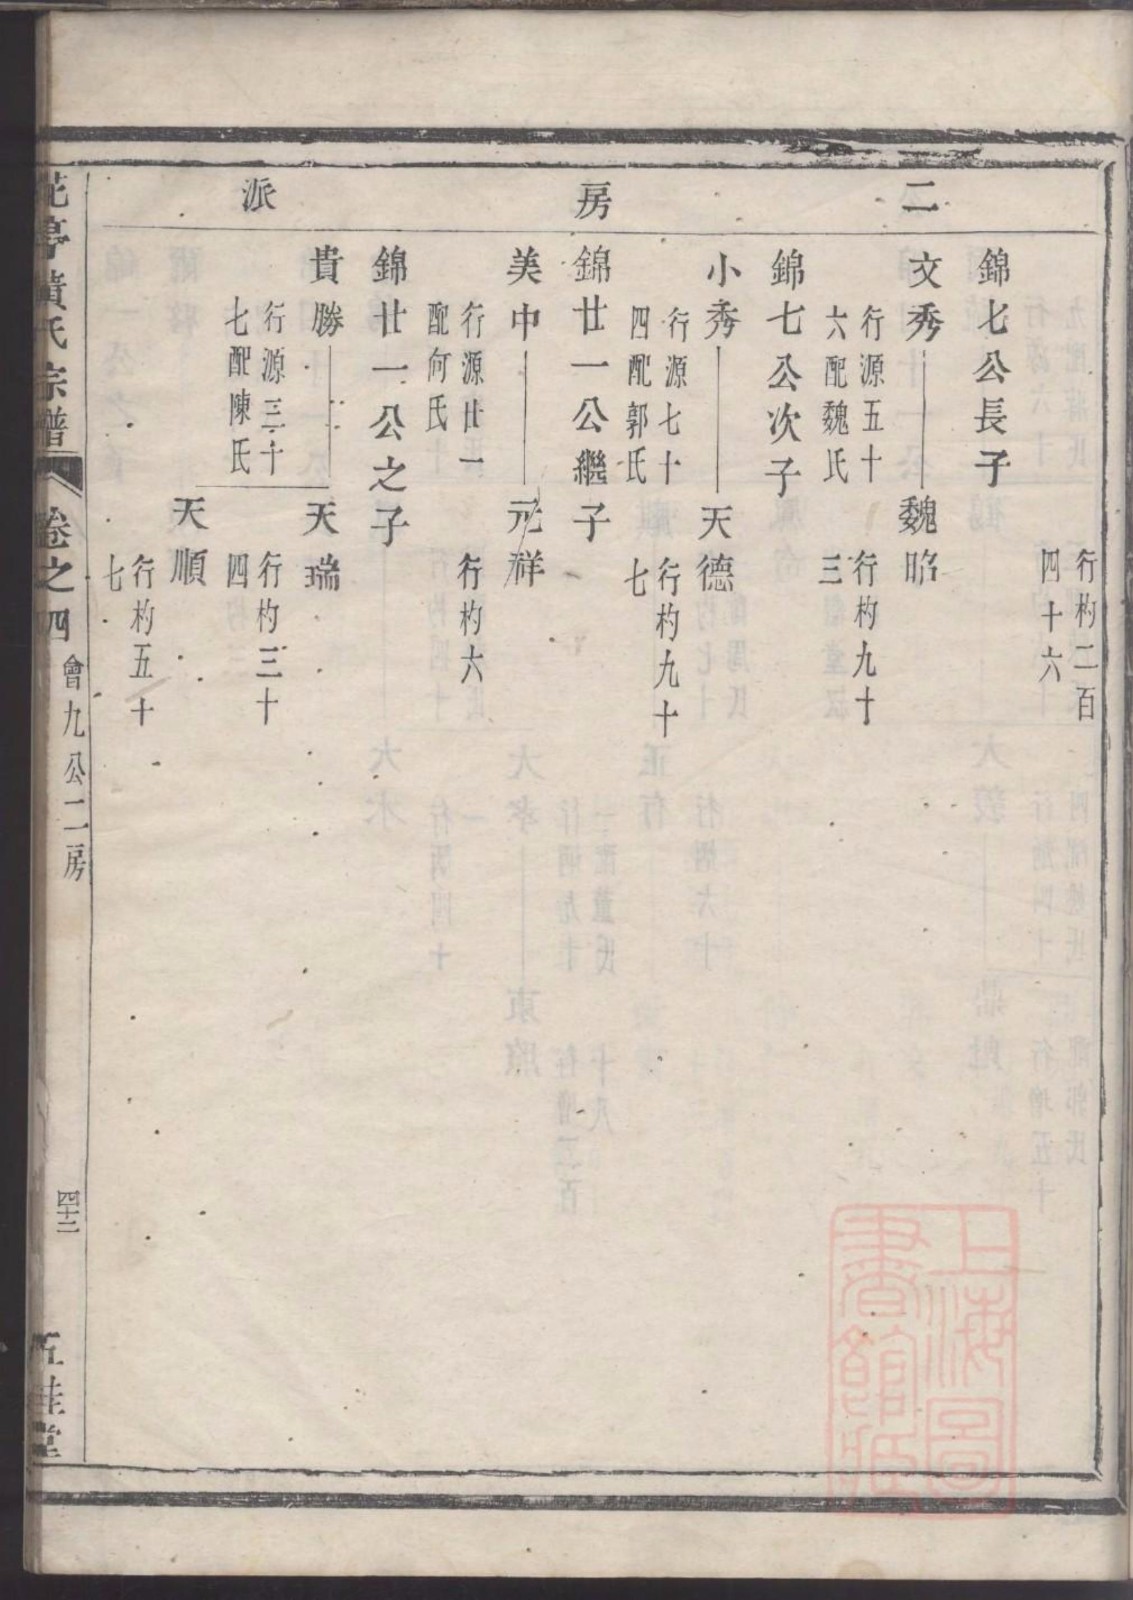 二房派
行杓二百
四十六
錦七公長子
文秀
行源五十
六配魏氏
魏昭
行杓九十
三
錦七公次子
小秀
行源七十
四配郭氏
天德
行杓九十
七
錦廿一公繼子
美中
行源廿一
配何氏
元祥
行杓六
錦廿一公之子
貴勝
行源三十
七配陳氏
天瑞
行杓三十
四
天順
行杓五十
七
花亭黃氏宗譜
卷之四
會九公二房
四十二
五桂堂
上海圖
書館藏